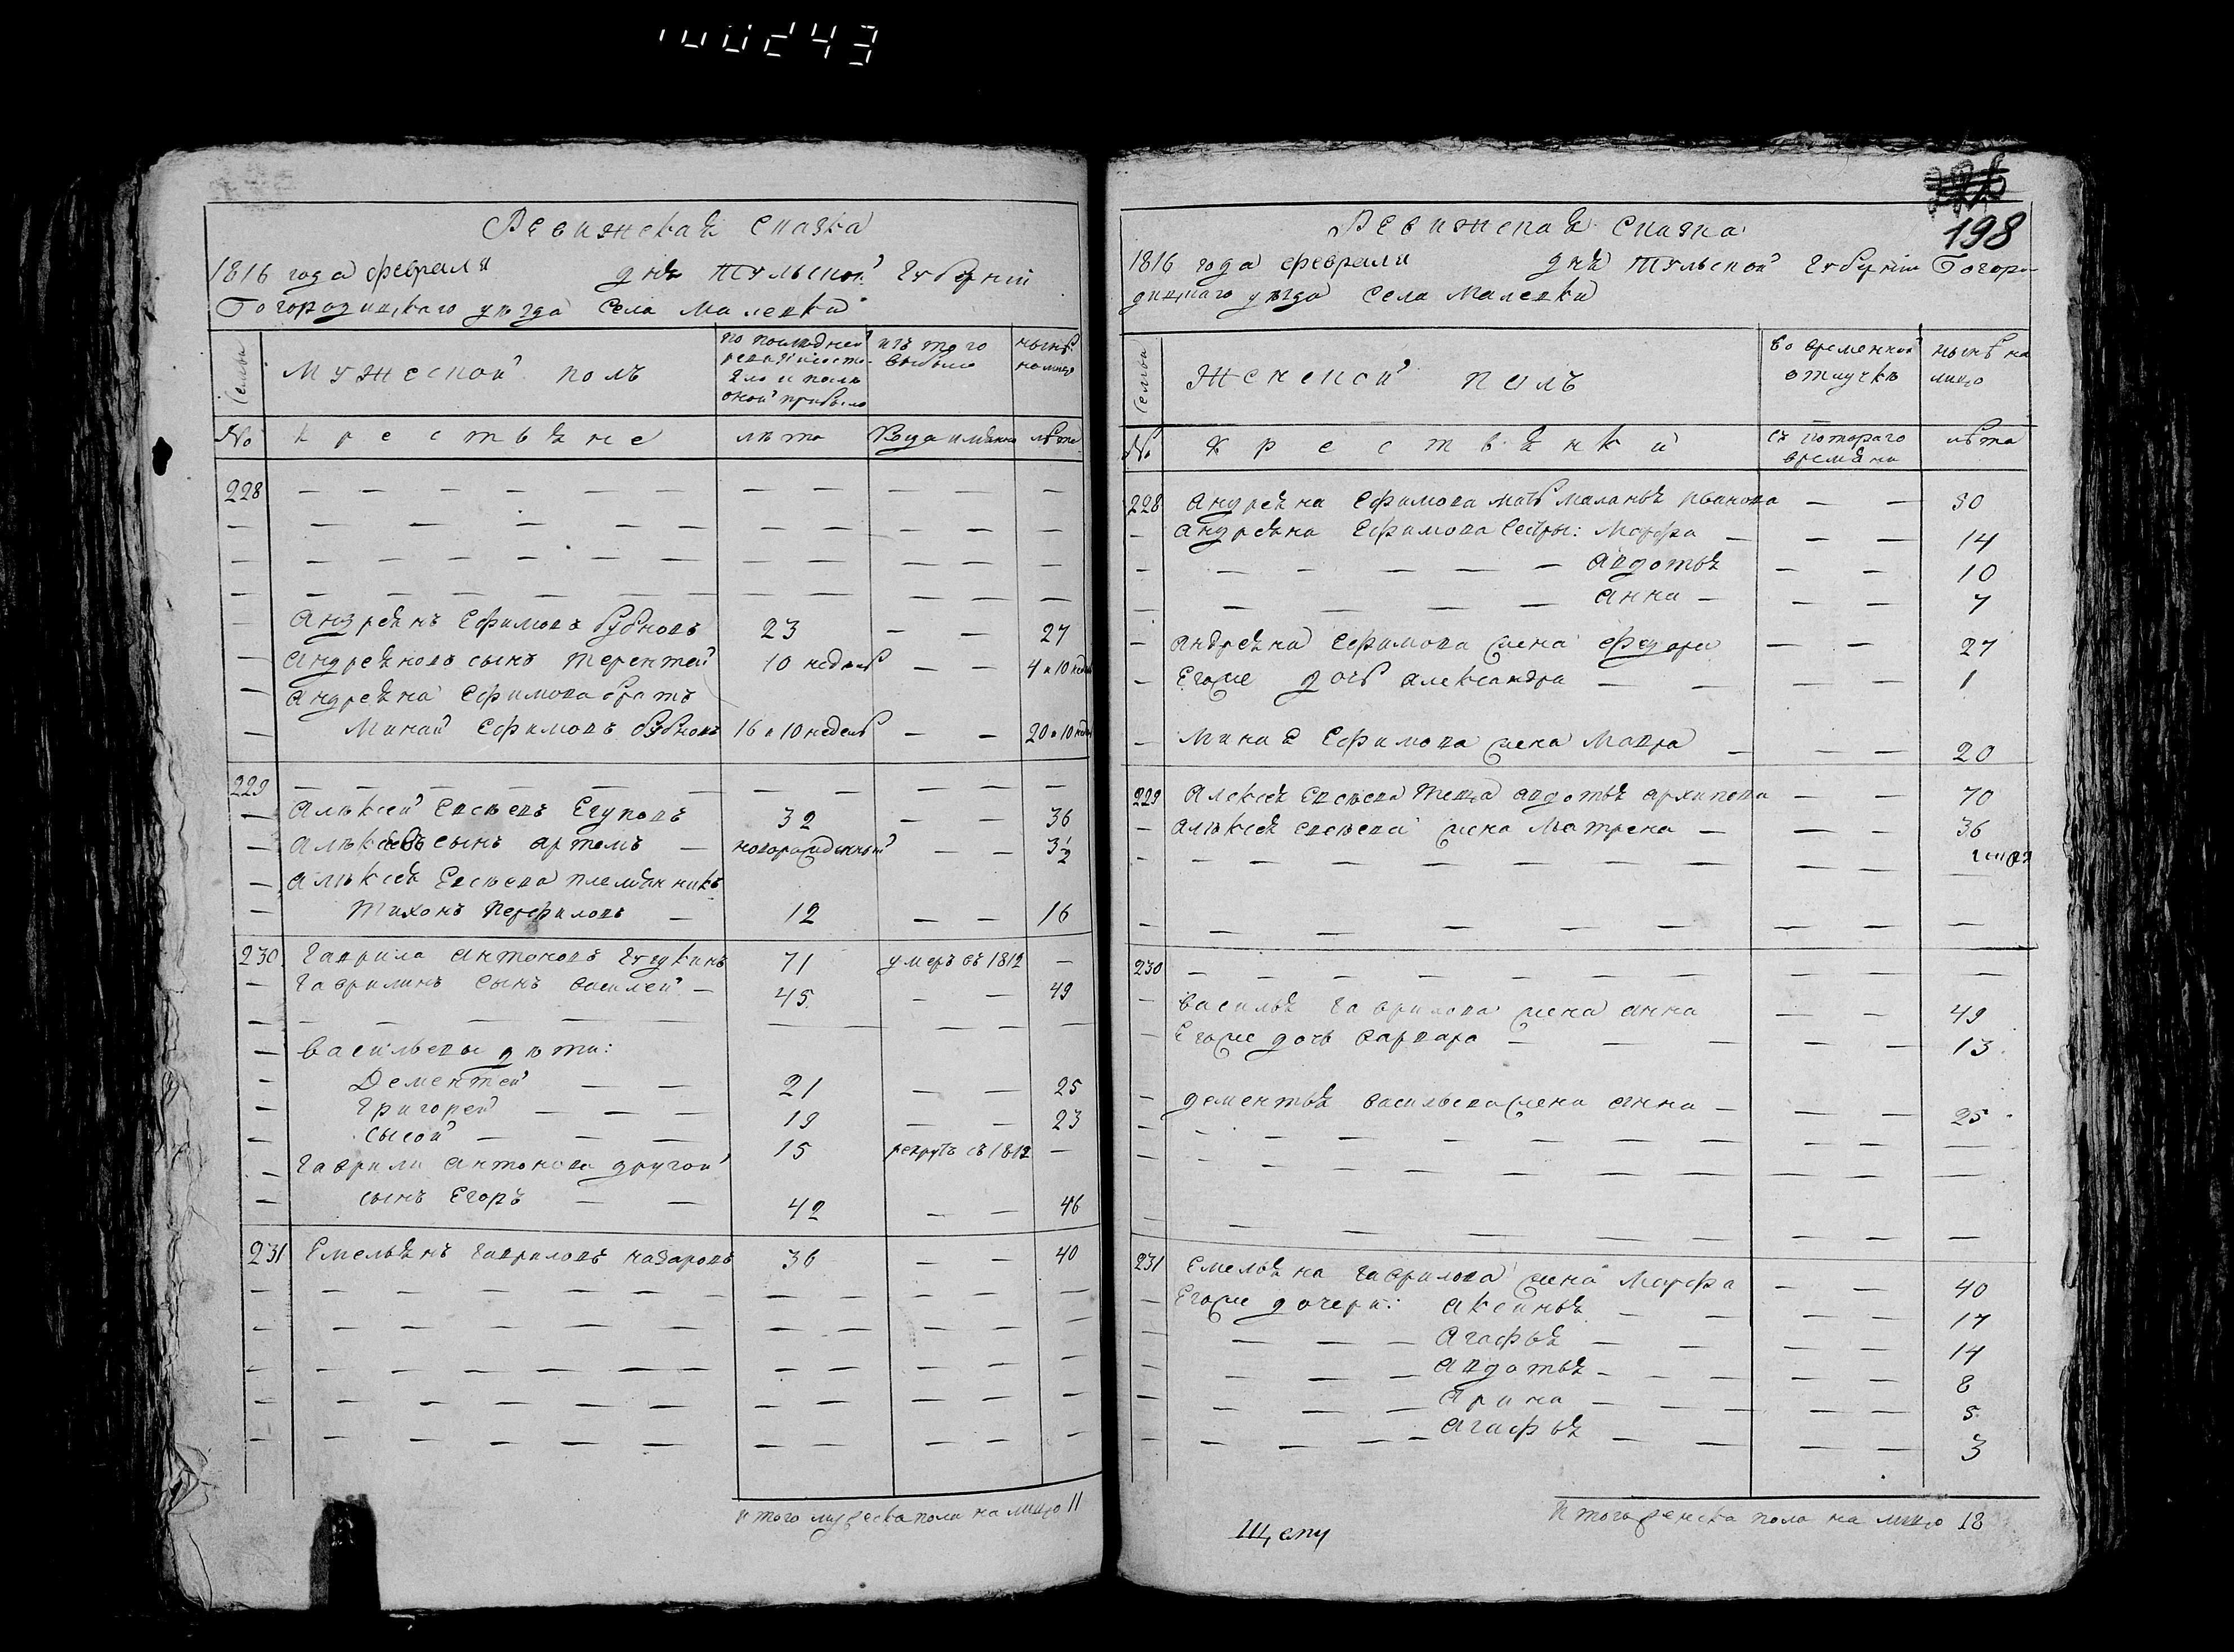 100243
Ревижская сказка
1816 года февраля дня Тульской губернии
Богородицкаго уезда Села Малевки
Семьи
Мужеской полъ
по последней ревизіи состояло и после оной прибыло
изъ того выбыло
ныне на лицо
№ крестьяне лета Когда имянно лета
228
Андреянъ Ефимовъ Бубновъ 23 — — 27
Андреяновъ сынъ Терентей 10 недель — — 4 и 10 недель
Андреяна Ефимова братъ
Минай Ефимовъ Бубновъ 16 и 10 недель — — 20 и 10 недель
229
Алексей Евсеевъ Егуповъ 32 — — 36
Алексеевъ сынъ Артемъ — новорожденный — — 3½
Алексея Евсеева племянникъ
Тихонъ Перфиловъ — 12 — — 16
230 Гаврила Антоновъ 71 умеръ въ 1812 —
Гаврилинъ сынъ Василей — 45 — — 49
Васильевы дети:
Дементей — — 21 — — 25
Григорей — — — 19 — — 23
Сысой — — — 15 рекрутъ въ 1812 —
Гаврилы Антонова другой
сынъ Егоръ — — 42 — — 46
231 Емельянъ Гавриловъ Назаровъ 36 — — 40
Итого мужеска пола на лицо 11
198
Ревижская сказка
1816 года февраля дня Тульской губерніи Богоро-
дицкаго уезда Села Малевки
Семьи
Женской полъ
во временной отлучке
ныне на лицо
№ Крестьянки съ котораго времяни лета
228 Андреяна Ефимова мать Маланья Иванова — — 50
Андреяна Ефимова сестры: Марфа — — — 14
— — — — — Авдотья — — 10
— — — — Анна — — — 7
Андреяна Ефимова жена Федора — — 27
Его же дочь Александра — — — — 1
Миная Ефимова жена Мавра — — — 20
229 Алексея Евсеева теща Авдотья Архипова — — 70
Алексея Евсеева жена Матрена — — — 36
230
Василья Гаврилова жена Анна — — 49
Его же дочь Варвара — — — — — 13
Дементья Васильева жена Анна — — — 25
231 Емельяна Гаврилова жена Марфа — — 40
Его же дочери: Аксинья — — — — 17
— — — Агафья — — — — 14
— — — Авдотья — — — — — 8
— — — Арина — — — — — 5
— — — — Агафья — — — — 3
Итого женска пола на лицо 18
Щепу